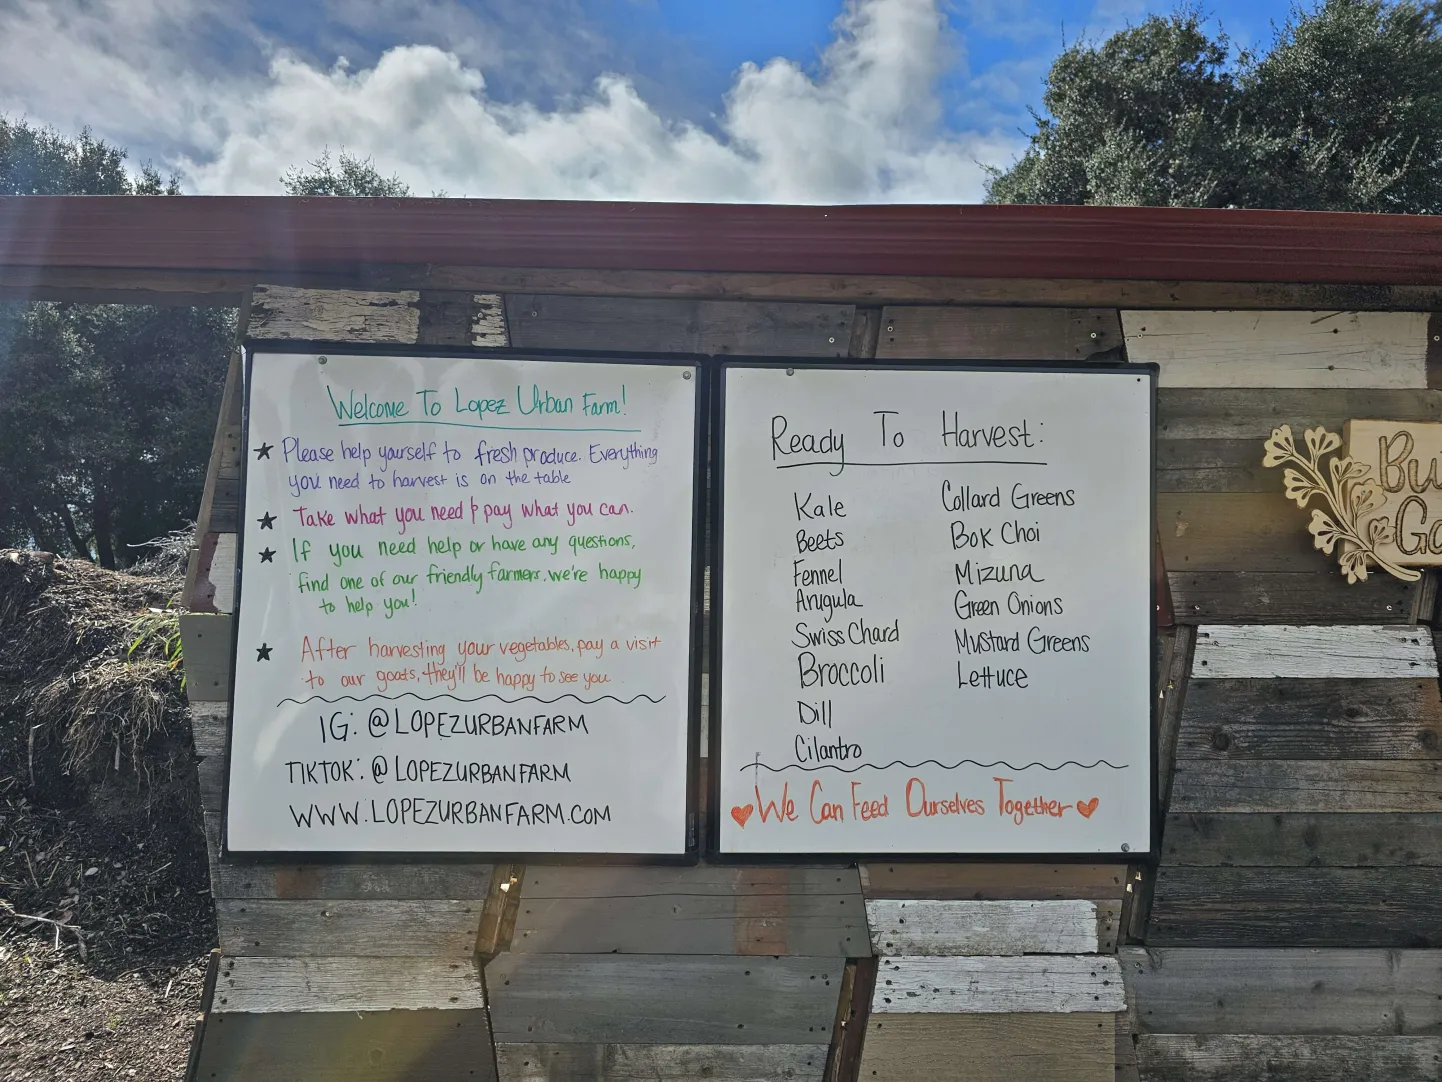 Welcome To Lopez Urban Farm!
★ Please help yourself to fresh produce. Everything
you need to harvest is on the table
★ Take what you need & pay what you can.
★ If you need help or have any questions,
find one of our friendly farmers, we're happy
to help you!
★ After harvesting your vegetables, pay a visit
to our goats, they'll be happy to see you.
IG: @LOPEZURBANFARM
TIKTOK: @LOPEZURBANFARM
WWW.LOPEZURBANFARM.COM
Ready To Harvest:
Kale
Beets
Fennel
Arugula
Swiss Chard
Broccoli
Dill
Cilantro
Collard Greens
Bok Choi
Mizuna
Green Onions
Mustard Greens
Lettuce
♥ We Can Feed Ourselves Together ♥